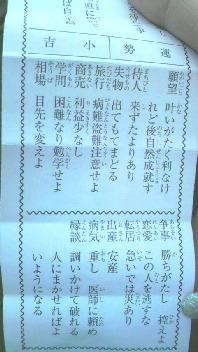 運勢 小吉
願望 叶いがたき利なけ
れど後自然成就す
待人 来ずたよりあり
失物 出てもまどる
旅行 病難盗難注意せよ
商売 利益少なし
学問 困難なり勉学せよ
相場 目先を変えよ
争事 勝ちがたし 控えよ
恋愛 この人を逃すな
転居 急いでは災あり
出産 安産
病気 重し 医師に頼め
縁談 調いかけて破れる
人にまかせればよ
いようになる